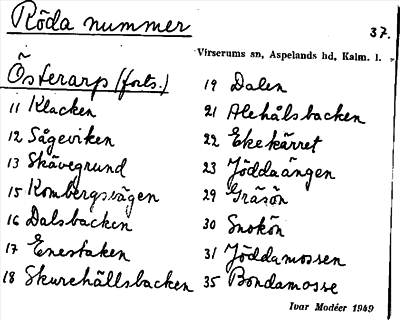 Röda nummer
37.
Virserums sn, Aspelands hd, Kalm. l.
Österarp (forts.)
11 Klacken
12 Sågeviken
13 Skävegrund
15 Kombergsvägen
16 Dalsbacken
17 Enestaken
18 Skurehällsbacken
19 Dalen
21 Alehålsbacken
22 Ekekärret
23 Jöddaängen
29 Gräsön
30 Snokön
31 Jöddamossen
35 Bondamosse
Ivar Modéer 1949